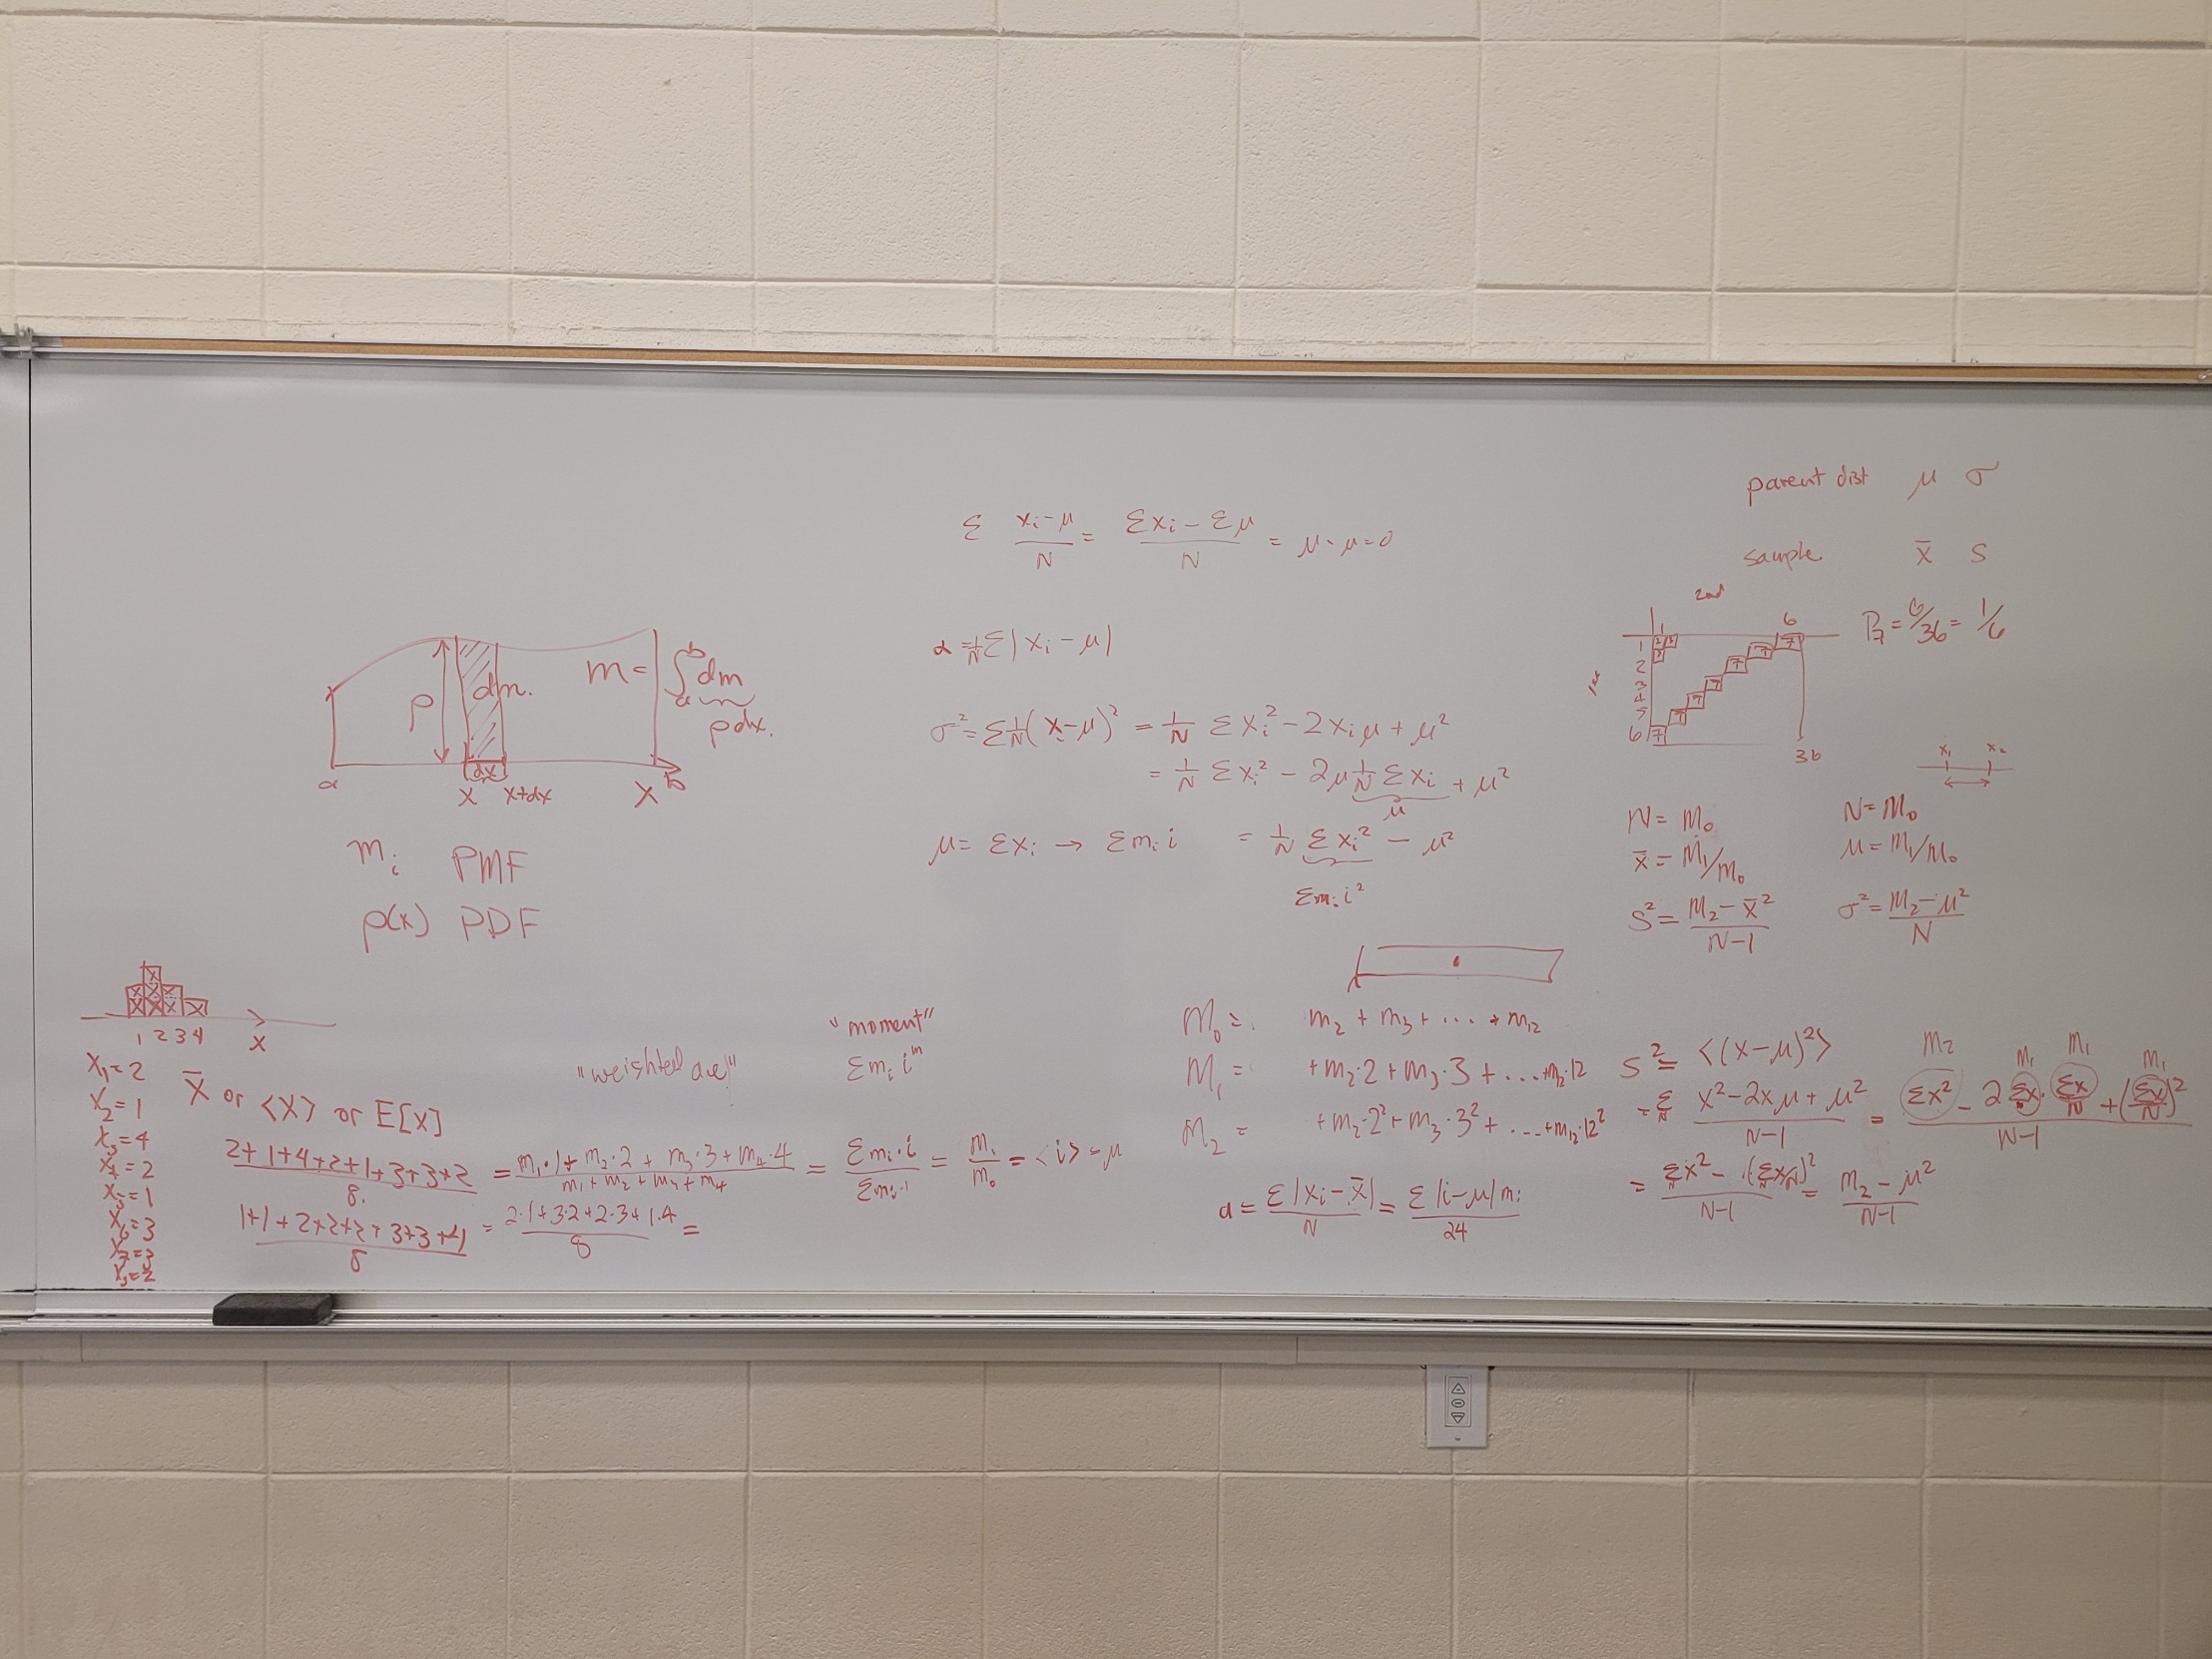 parent dist μ σ
sample x̄ S
Σ (xᵢ-μ)/N = (Σxᵢ - Σμ)/N = μ-μ=0
α = 1/N Σ|xᵢ - μ|
σ² = Σ 1/N (x-μ)² = 1/N Σxᵢ² - 2xᵢμ + μ²
= 1/N Σxᵢ² - 2μ 1/N Σxᵢ + μ²
μ
μ = Σxᵢ → Σmᵢ i = 1/N Σxᵢ² - μ²
Σmᵢ i²
ρ dm. m = ∫ₐᵇ dm
ρdx.
dx
a x x+dx x b
mᵢ PMF
ρ(x) PDF
2nd
1 6
1st
1 2 3 7
2 3 7
3 7
4 7
5 7
6 7
36
P₇ = 6/36 = 1/6
x₁ x₂
N = M₀ N = M₀
x̄ = M₁/M₀ μ = M₁/M₀
S² = (M₂ - x̄²)/(N-1) σ² = (M₂ - μ²)/N
x x x x x x x x
1 2 3 4 x
x₁=2
x₂=1
x₃=4
x₄=2
x₅=1
x₆=3
x₇=3
x₈=2
x̄ or <x> or E[x]
"weighted ave"
"moment"
Σmᵢ iᵐ
(2+1+4+2+1+3+3+2)/8. = (m₁·1+m₂·2+m₃·3+m₄·4)/(m₁+m₂+m₃+m₄) = Σmᵢ·i/Σmᵢ·1 = M₁/M₀ = <i> = μ
(1+1+2+2+2+3+3+4)/8 = (2·1+3·2+2·3+1·4)/8 =
M₀ = m₂ + m₃ + ... + m₁₂
M₁ = +m₂·2 + m₃·3 + ... +m₁₂·12
M₂ = +m₂·2² + m₃·3² + ... +m₁₂·12²
α = Σ|xᵢ - x̄|/N = Σ|i-μ|mᵢ/24
S² = <(x-μ)²>
M₂ M₁ M₁ M₁
= Σ (x²-2xμ+μ²)/(N-1) = (Σx² - 2Σx·Σx/N + (Σx/N)²)/(N-1)
= (Σx² - (Σx/N)²)/(N-1) = (M₂ - μ²)/(N-1)